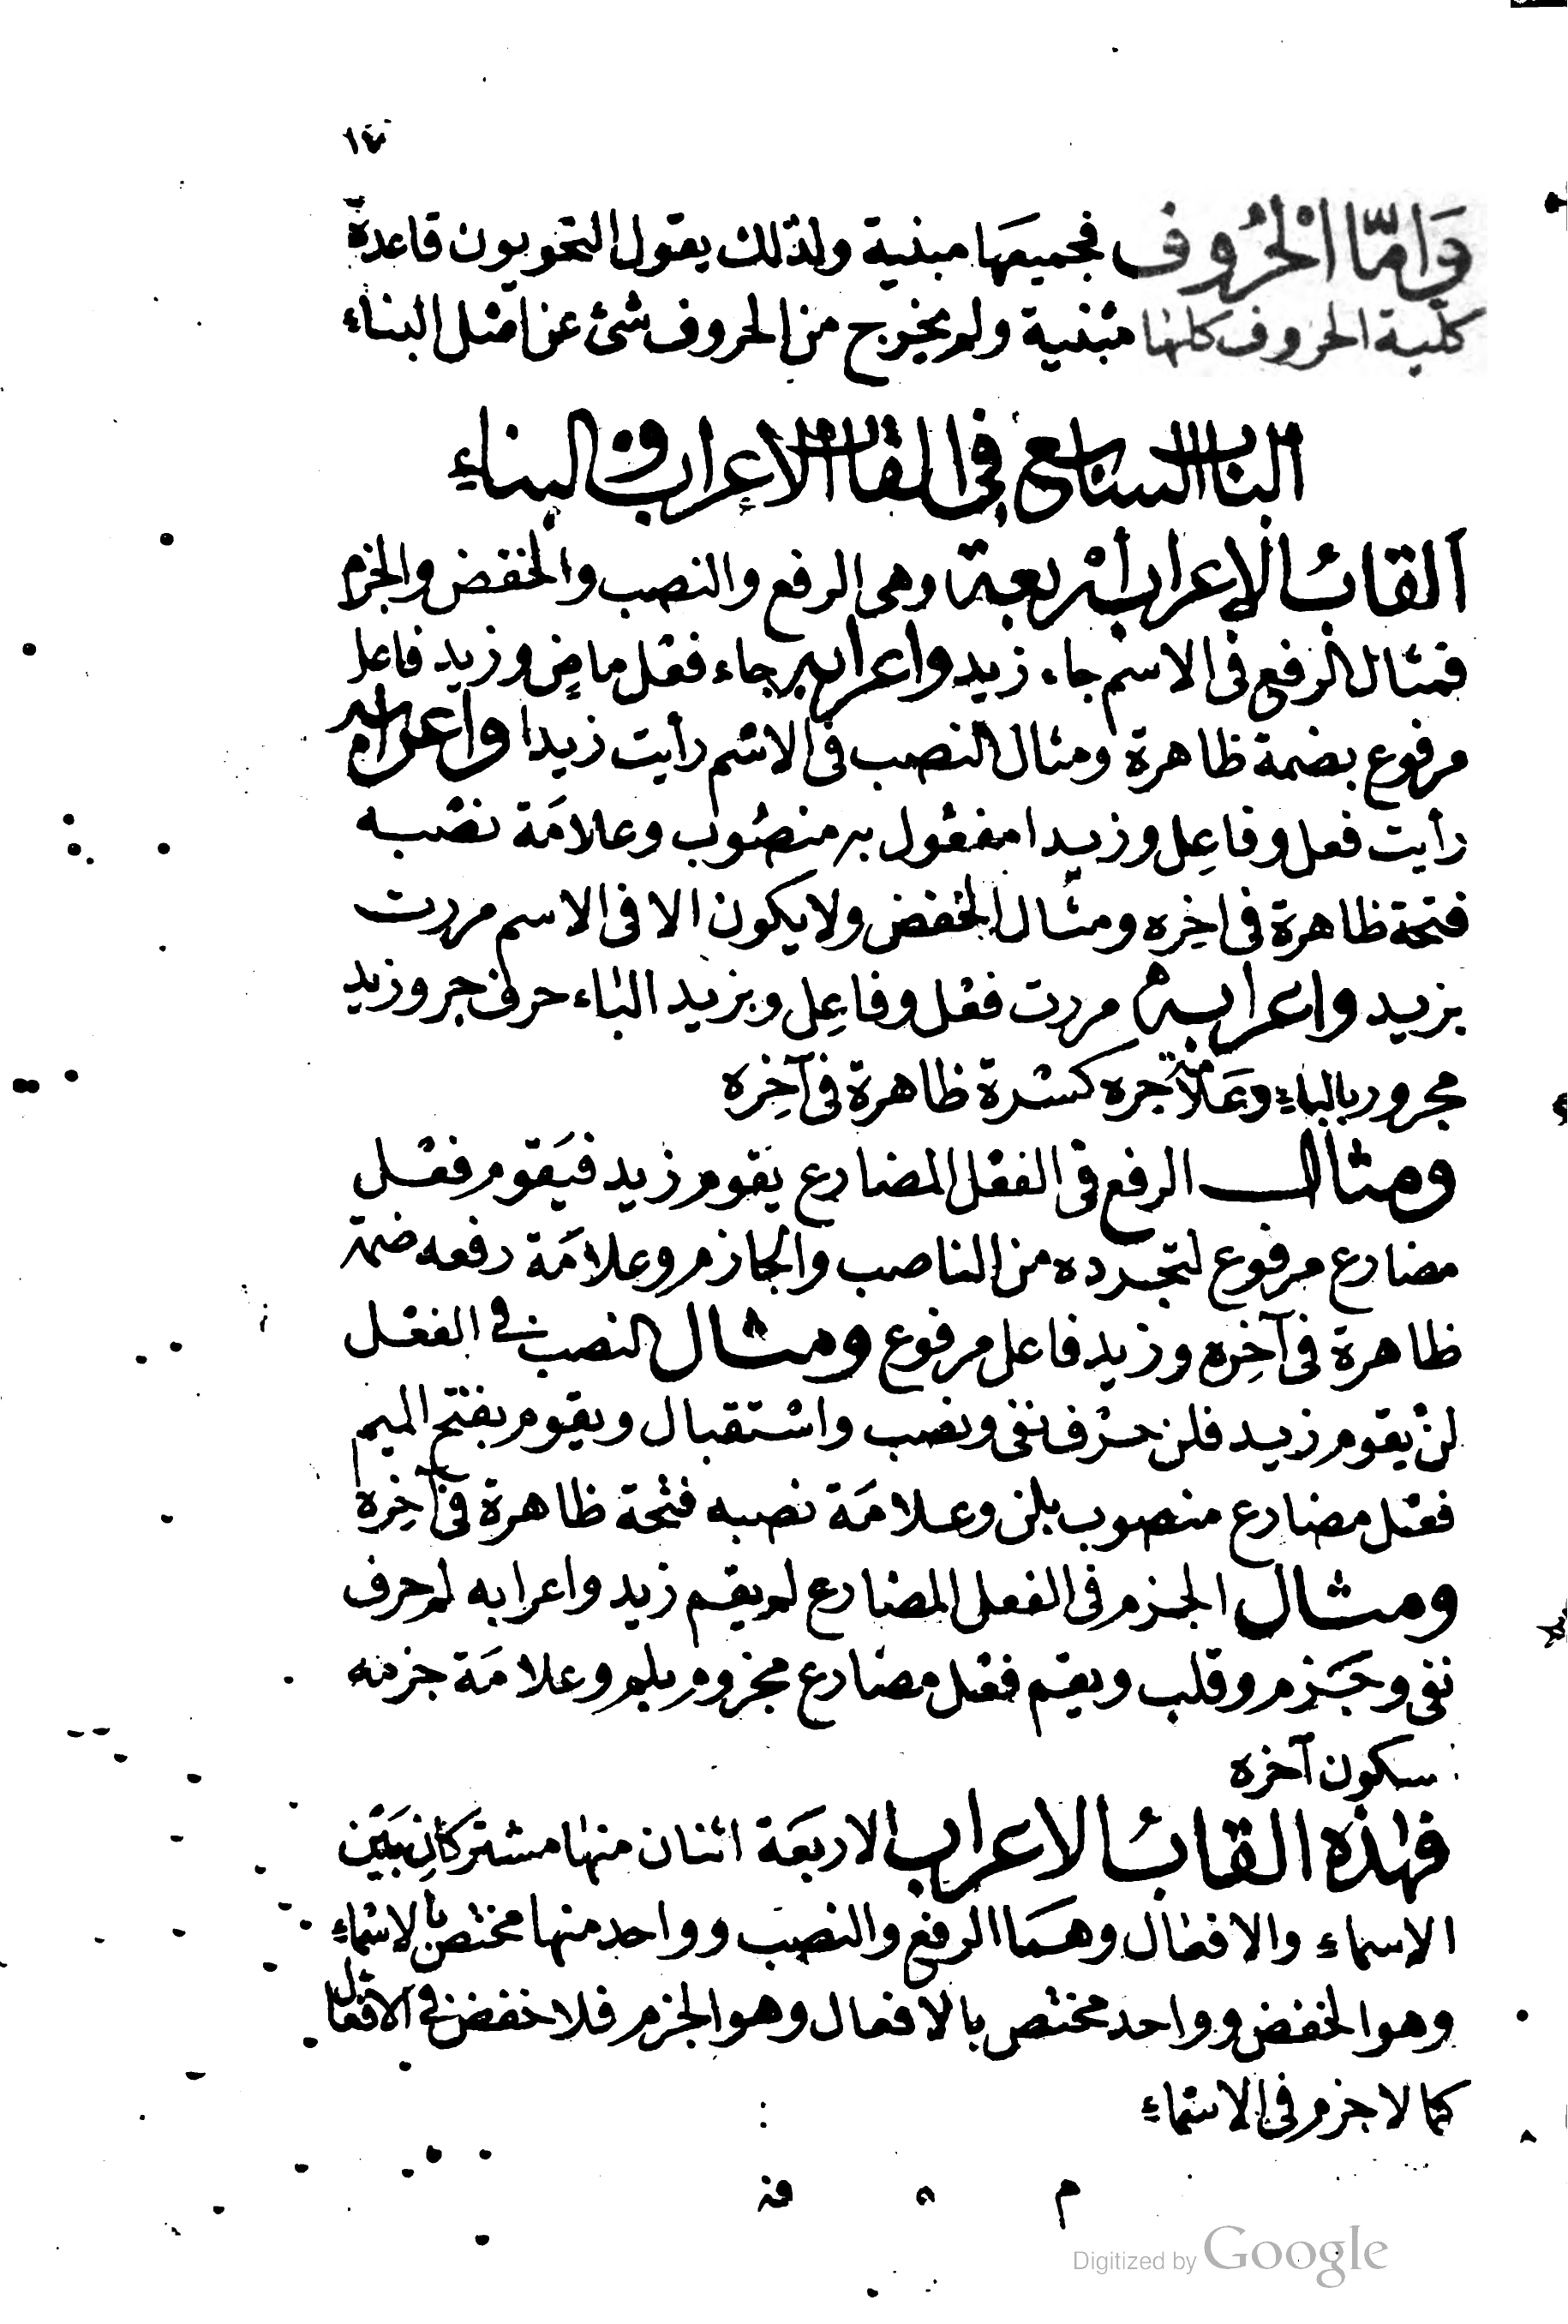 ١٧
وَامّا الْحُرُوف فجميعَها مبنية ولذلك يقول النحويون قاعدة
كلّية الحروف كلها مبنية ولم يخرج من الحروف شئ عن اصل البناء
الباب السابع في القاب الإعراب والبناء
القاب الإعراب أربعة وهى الرفع والنصب والخفض والجزم
فمثال الرفع فى الاسم جاء زيد واعرابه جاء فعل ماضٍ وزيد فاعل
مرفوع بضمة ظاهرة ومثال النصب فى الاسم رأيت زيدا واعرابه
رأيت فعل وفاعِل وزيدا مفعول به منصوب وعلامَة نصبه
فتحة ظاهرة فى اخِره ومثال الخفض ولا يكون الا فى الاسم مررت
بزيد واعرابه مررت فعل وفاعِل وبزيد الباء حرف جر وزيد
مجرور بالباءِ وعَلامة جره كسرة ظاهرة فى آخِره
ومثال الرفع فى الفعل المضارع يَقوم زيد فيَقوم فعل
مضارع مرفوع لتجرده من الناصب والجازم وعلامَة رفعه ضمة
ظاهرة فى آخِره وزيد فاعل مرفوع ومثال النصب في الفعل
لن يقوم زيد فلن حرف نفى ونصب واستقبال ويقوم بفتح الميم
فعل مضارع منصوب بلن وعلامَة نصبه فتحة ظاهرة فى آخِره
ومثال الجزم فى الفعل المضارع لم يقم زيد واعرابه لم حرف
نفى وجَزم وقلب ويقم فعل مضارع مجزوم بلم وعلامَة جزمه
سكون آخره
فهذه القاب الاعراب الاربعَة اثنان منها مشتركانِ بَيَن
الاسماء والافعال وهمَا الرفع والنصب وواحد منها مختص بالاسماءِ
وهو الخفض وواحد مختص بالافعال وهو الجزم فلا خفض في الافعال
كما لا جزم فى الاسماءِ
Digitized by Google